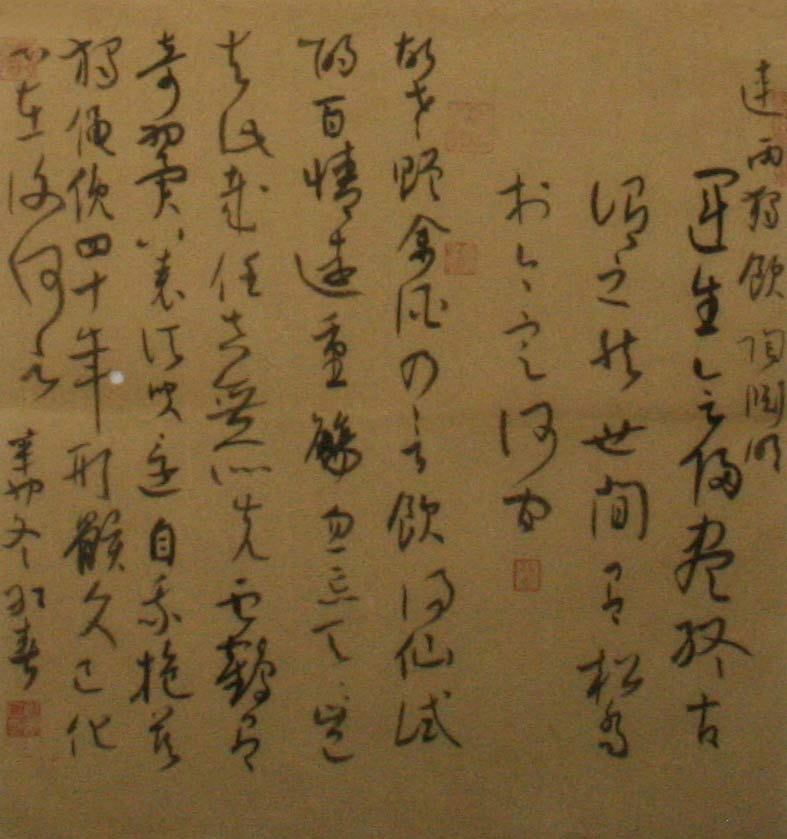 連雨獨飲 陶淵明
運生會歸盡終古
謂之然世間有松喬
於今定何間
故老贈余酒乃言飲得仙試
酌百情遠重觴忽忘天天豈
去此哉任真無所先雲鶴有
奇翼八表須臾還自我抱茲
獨僶俛四十年形骸久已化
心在復何言 辛卯冬 春